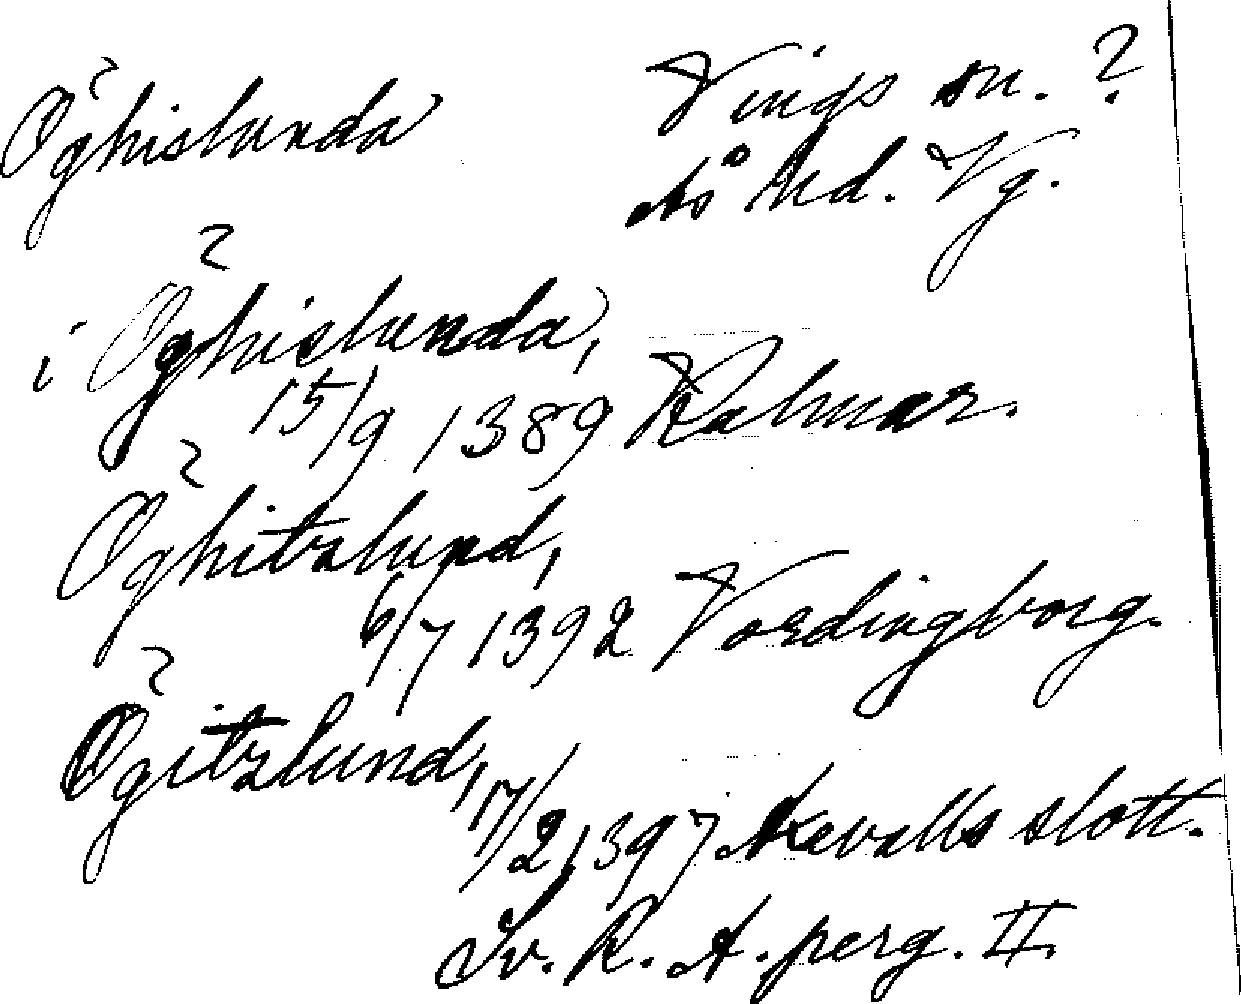 Ŏghislunda Vings sn. ?
Ås hd. Vg.
i Ŏghislunda,
15/9 1389 Kalmar.
Ŏghitzlund,
6/7 1392 Vordingborg.
Ŏgitzlund,
17/2 1397 Axevalls slott.
Sv. R. A. perg. II